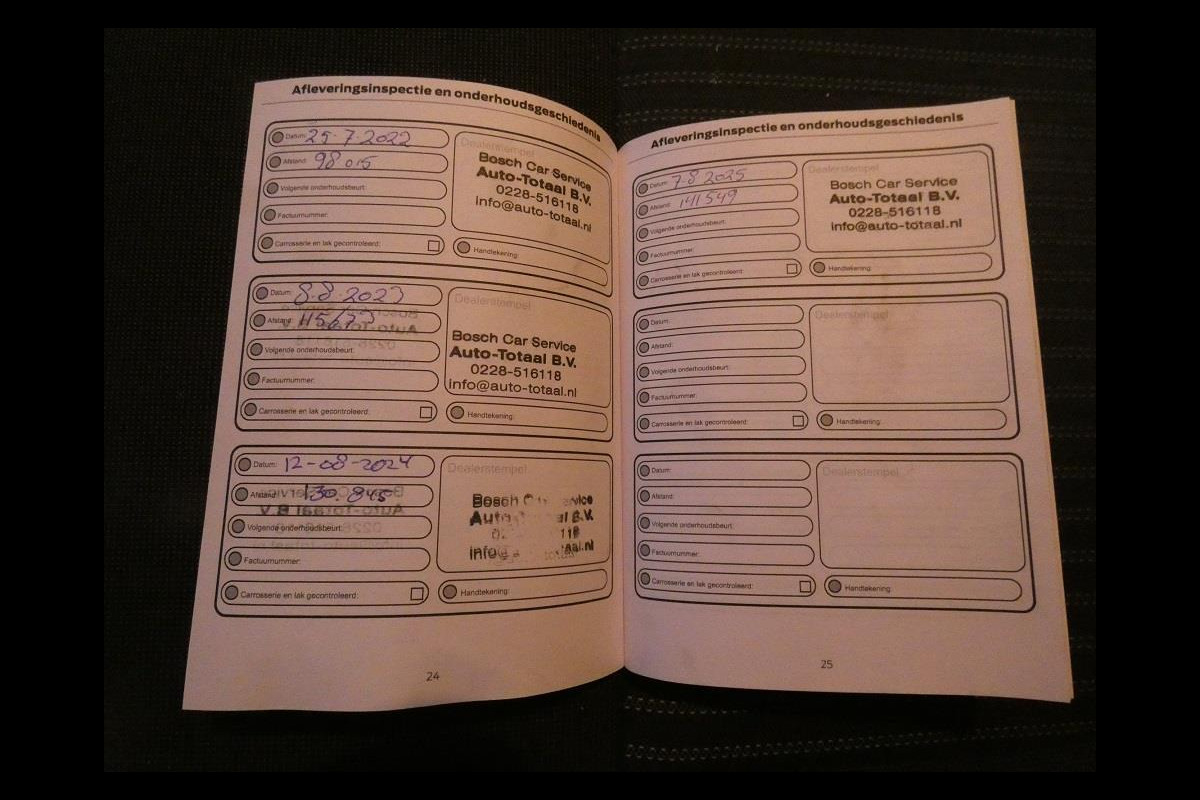 Afleveringsinspectie en onderhoudsgeschiedenis
Datum: 25-7-2022
Afstand: 98015
Volgende onderhoudsbeurt:
Factuurnummer:
Carrosserie en lak gecontroleerd:
Dealerstempel
Bosch Car Service
Auto-Totaal B.V.
0228-516118
info@auto-totaal.nl
Handtekening:
Datum: 8-8-2023
Afstand:
Volgende onderhoudsbeurt:
Factuurnummer:
Carrosserie en lak gecontroleerd:
Dealerstempel
Bosch Car Service
Auto-Totaal B.V.
0228-516118
info@auto-totaal.nl
Handtekening:
Datum: 12-08-2024
Afstand: 130.845
Volgende onderhoudsbeurt:
Factuurnummer:
Carrosserie en lak gecontroleerd:
Dealerstempel
Bosch
Handtekening:
24
Afleveringsinspectie en onderhoudsgeschiedenis
Datum: 7 8 2025
Afstand: 141549
Volgende onderhoudsbeurt:
Factuurnummer:
Carrosserie en lak gecontroleerd:
Dealerstempel
Bosch Car Service
Auto-Totaal B.V.
0228-516118
info@auto-totaal.nl
Handtekening:
Datum:
Afstand:
Volgende onderhoudsbeurt:
Factuurnummer:
Carrosserie en lak gecontroleerd:
Dealerstempel
Handtekening:
Datum:
Afstand:
Volgende onderhoudsbeurt:
Factuurnummer:
Carrosserie en lak gecontroleerd:
Dealerstempel
Handtekening:
25